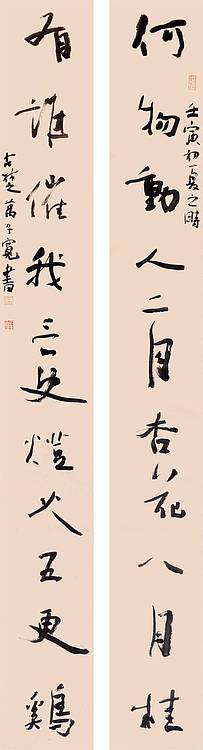 壬寅初夏之時
何物動人二月杏花八月桂
有誰催我三更燈火五更鷄
古楚萬子寬書